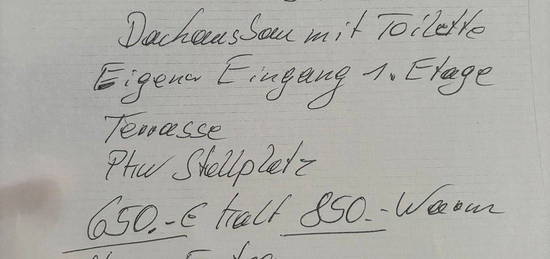 Dachausbau mit Toilette
Eigener Eingang 1. Etage
Terrasse
PKW Stellplatz
650.-€ Kalt 850.-Warm